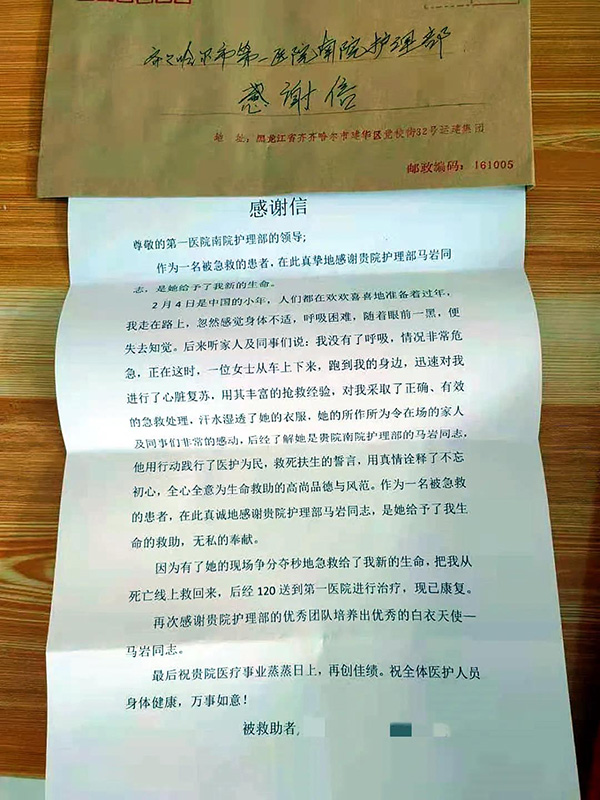 齐齐哈尔市第一医院南院护理部
感谢信
地 址：黑龙江省齐齐哈尔市建华区党校街32号运建集团
邮政编码：161005
感谢信
尊敬的第一医院南院护理部的领导；
作为一名被急救的患者，在此真挚地感谢贵院护理部马岩同
志，是她给予了我新的生命。
2 月 4 日是中国的小年，人们都在欢欢喜喜地准备着过年，
我走在路上，忽然感觉身体不适，呼吸困难，随着眼前一黑，便
失去知觉。后来听家人及同事们说：我没有了呼吸，情况非常危
急，正在这时，一位女士从车上下来，跑到我的身边，迅速对我
进行了心脏复苏，用其丰富的抢救经验，对我采取了正确、有效
的急救处理，汗水湿透了她的衣服，她的所作所为令在场的家人
及同事们非常的感动，后经了解她是贵院南院护理部的马岩同志，
他用行动践行了医护为民，救死扶生的誓言，用真情诠释了不忘
初心，全心全意为生命救助的高尚品德与风范。作为一名被急救
的患者，在此真诚地感谢贵院护理部马岩同志，是她给予了我生
命的救助，无私的奉献。
因为有了她的现场争分夺秒地急救给了我新的生命，把我从
死亡线上救回来，后经 120 送到第一医院进行治疗，现已康复。
再次感谢贵院护理部的优秀团队培养出优秀的白衣天使—
马岩同志。
最后祝贵院医疗事业蒸蒸日上，再创佳绩。祝全体医护人员
身体健康，万事如意！
被救助者